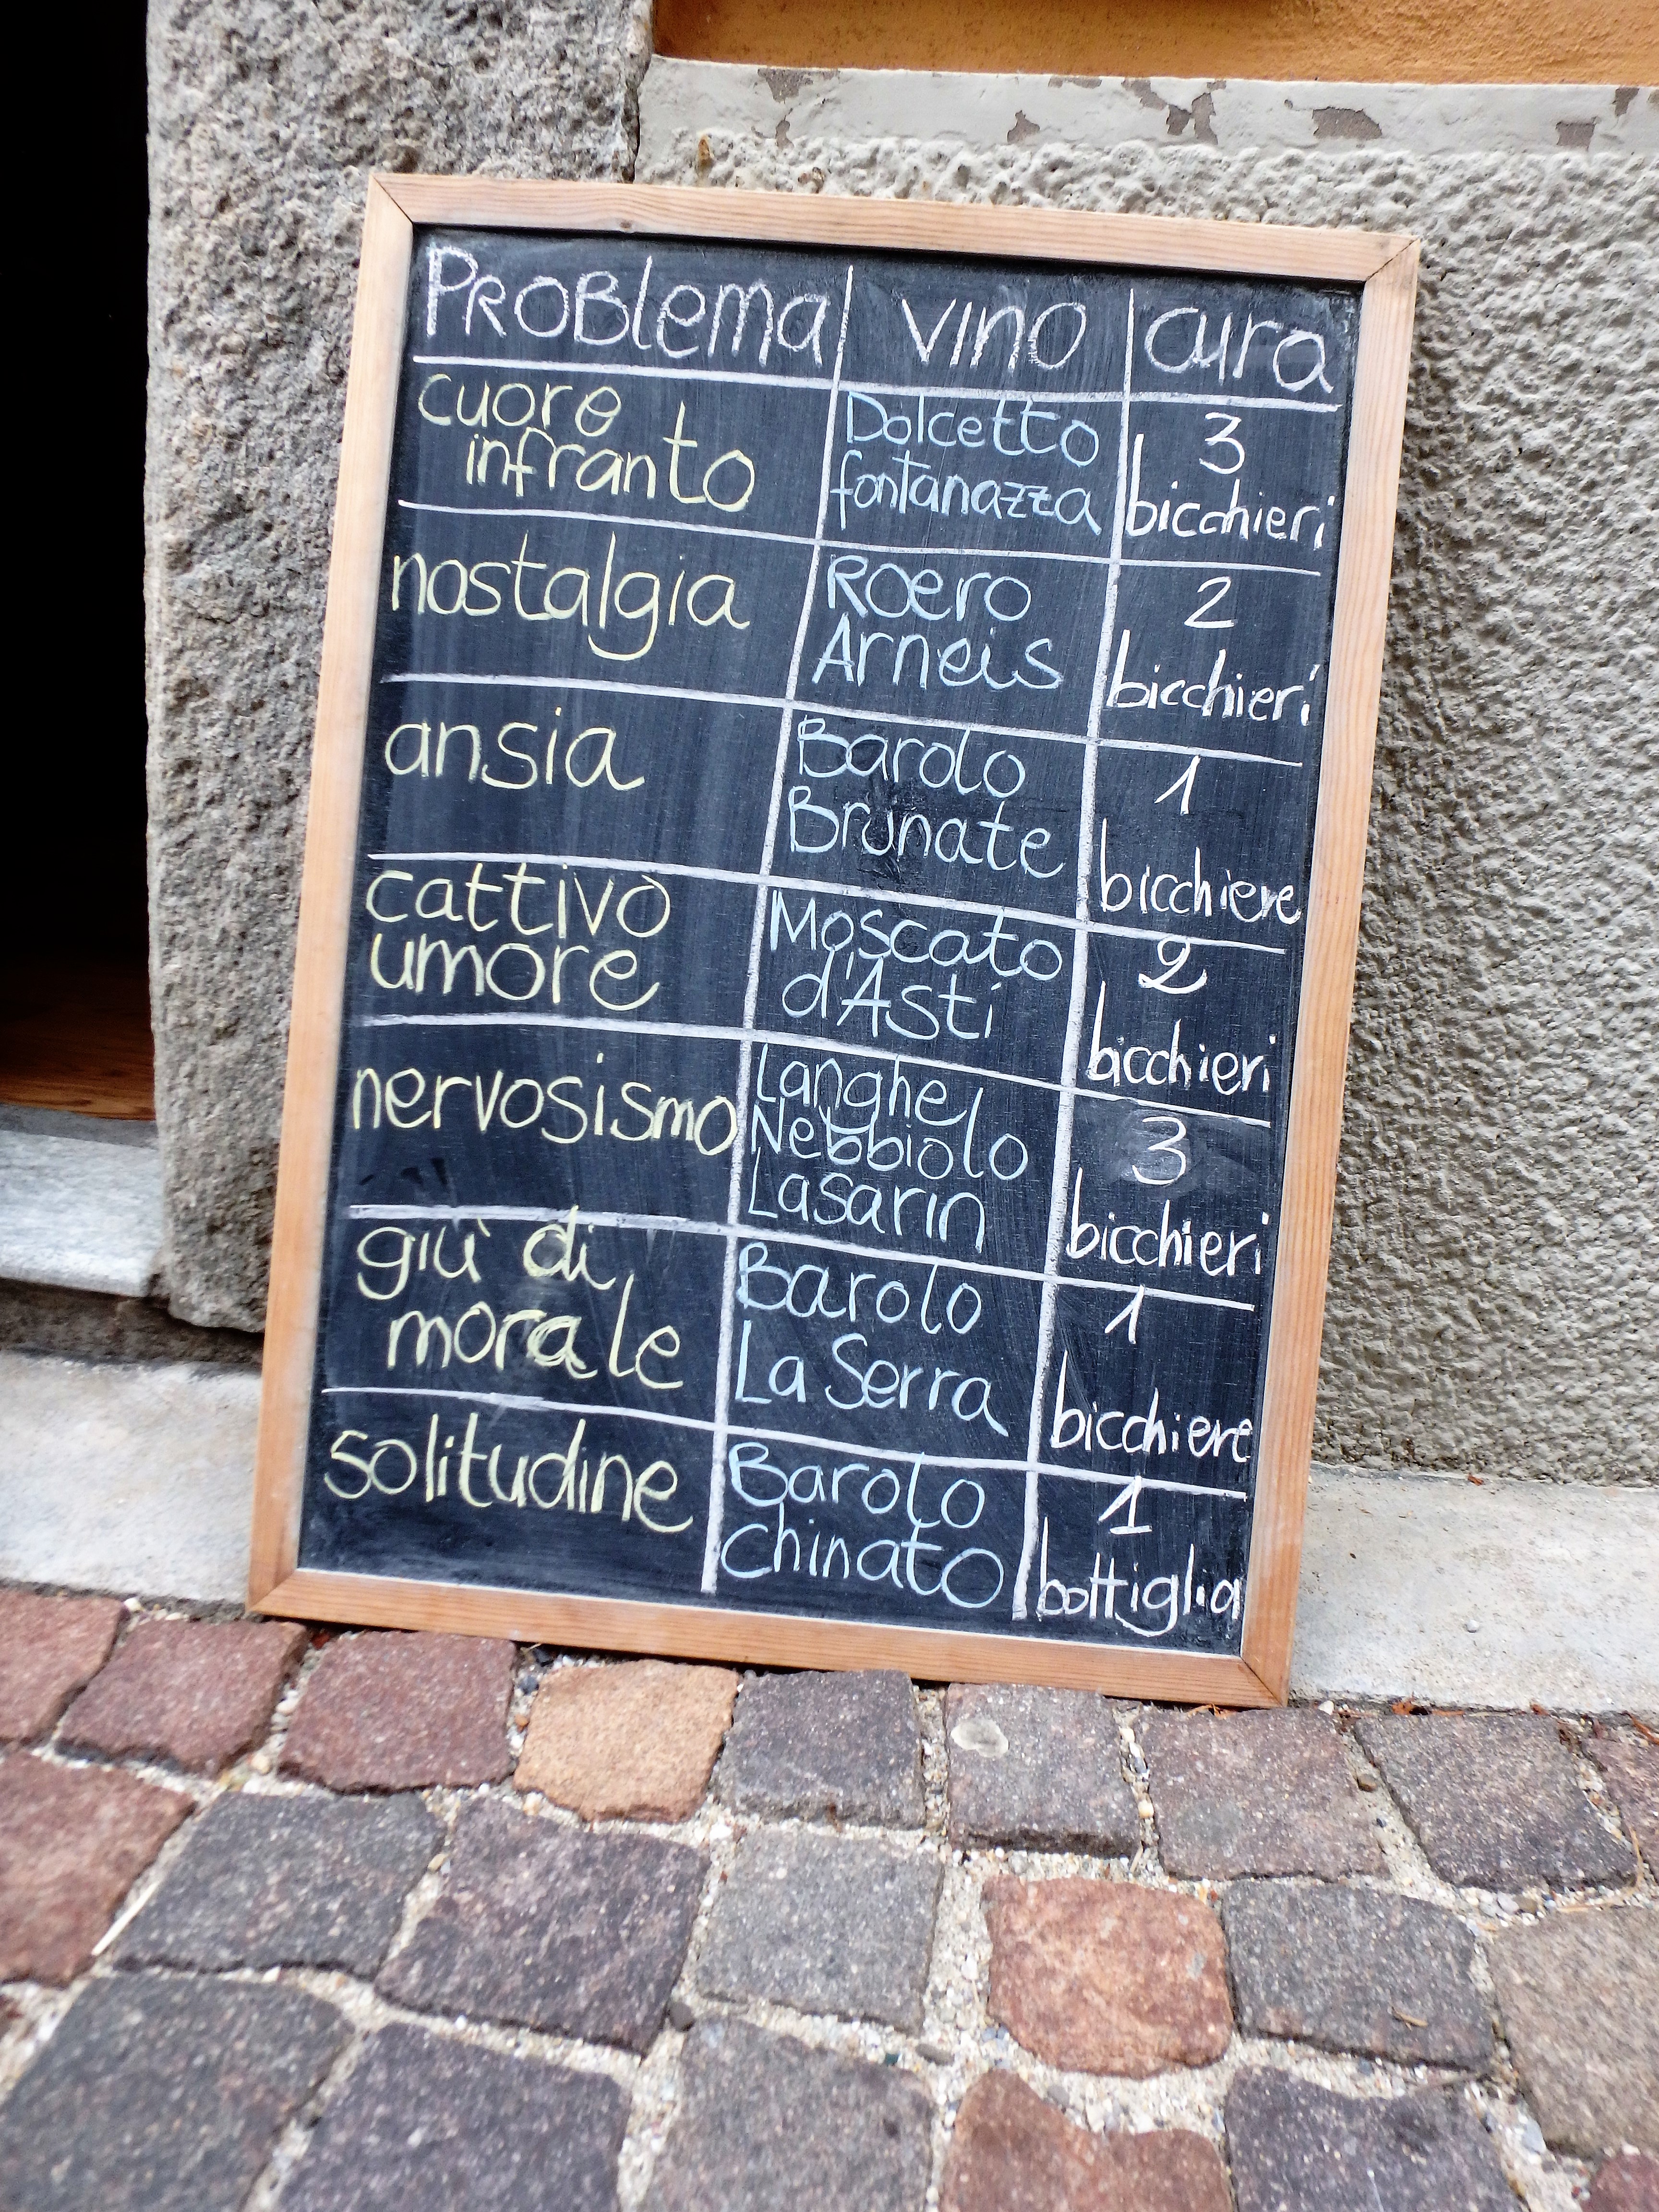 PROBlema vino cura
cuore infranto Dolcetto fontanazza 3 bicchieri
nostalgia Roero Arneis 2 bicchieri
ansia Barolo Brunate 1 bicchiere
cattivo umore Moscato d'Asti 2 bicchieri
nervosismo Langhe Nebbiolo Lasarin 3 bicchieri
giù di morale Barolo La Serra 1 bicchiere
solitudine Barolo chinato 1 bottiglia